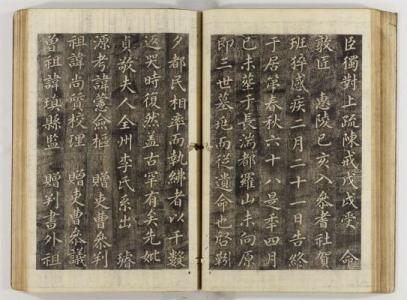 臣獨對上疏陳戒戊戌受 命
敦匠 惠陵己亥入耆社賀
班猝感疾二月二十一日告終
于居第春秋六十八是年四月
己未葬于長湍都羅山未向原
即三世墓兆而從遺命也啓靷
夕都民相率而執紼者以千數
返哭時復然盖古罕有矣先妣
貞敬夫人全州李氏系出 璿
源考諱憲僉樞 贈吏曹參判
祖諱尚質校理 贈吏曹參議
曾祖諱塡縣監 贈判書外祖